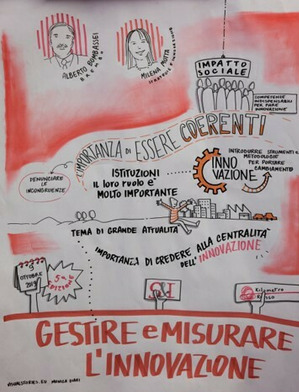 ALBERTO BOMBASSEI
BREMBO
MILENA MOTTA
IMPATTO
SOCIALE
COMPETENZE
INDISPENSABILI
PER FARE
INNOVAZIONE
IMPORTANZA DI ESSERE COERENTI
DENUNCIARE
LE
INCONGRUENZE
ISTITUZIONI
IL LORO RUOLO E'
MOLTO IMPORTANTE
INNO
VAZIONE
INTRODURRE STRUMENTI E
METODOLOGIE
PER PORTARE
CAMBIAMENTO
TEMA DI GRANDE ATTUALITÀ
IMPORTANZA DI CREDERE ALLA CENTRALITÀ
DELL'INNOVAZIONE
OTTOBRE
5ª
EDIZIONE
Kilometro
Rosso
GESTIRE e MISURARE
L'INNOVAZIONE